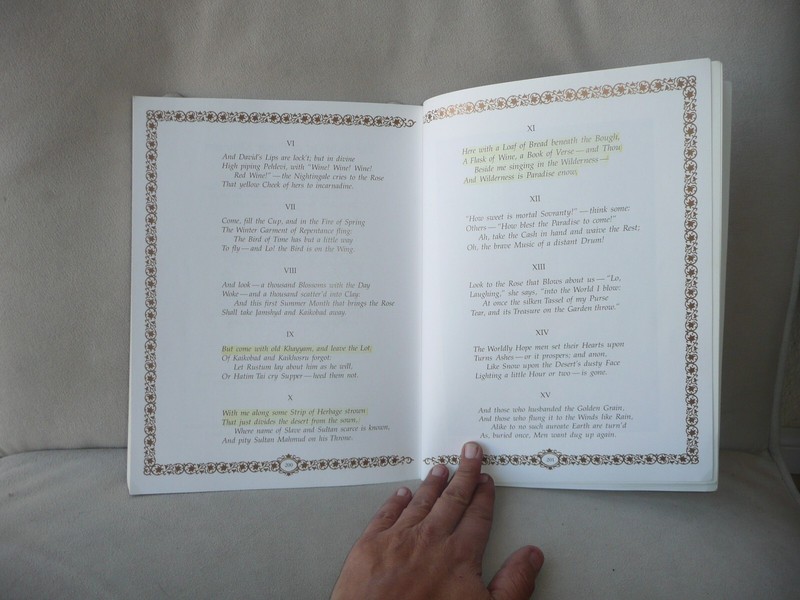 VI
And David's Lips are lock't; but in divine
High piping Pehlevi, with "Wine! Wine! Wine!
Red Wine!" — the Nightingale cries to the Rose
That yellow Cheek of hers to incarnadine.
VII
Come, fill the Cup, and in the Fire of Spring
The Winter Garment of Repentance fling:
The Bird of Time has but a little way
To fly — and Lo! the Bird is on the Wing.
VIII
And look — a thousand Blossoms with the Day
Woke — and a thousand scatter'd into Clay:
And this first Summer Month that brings the Rose
Shall take Jamshyd and Kaikobad away.
IX
But come with old Khayyam, and leave the Lot,
Of Kaikobad and Kaikhosru forgot:
Let Rustum lay about him as he will,
Or Hatim Tai cry Supper — heed them not.
X
With me along some Strip of Herbage strown
That just divides the desert from the sown,
Where name of Slave and Sultan scarce is known,
And pity Sultan Mahmud on his Throne.
200
XI
Here with a Loaf of Bread beneath the Bough,
A Flask of Wine, a Book of Verse — and Thou
Beside me singing in the Wilderness —
And Wilderness is Paradise enow.
XII
"How sweet is mortal Sovranty!" — think some:
Others — "How blest the Paradise to come!"
Ah, take the Cash in hand and waive the Rest;
Oh, the brave Music of a distant Drum!
XIII
Look to the Rose that Blows about us — "Lo,
Laughing," she says, "into the World I blow:
At once the silken Tassel of my Purse
Tear, and its Treasure on the Garden throw."
XIV
The Worldly Hope men set their Hearts upon
Turns Ashes — or it prospers; and anon,
Like Snow upon the Desert's dusty Face
Lighting a little Hour or two — is gone.
XV
And those who husbanded the Golden Grain,
And those who flung it to the Winds like Rain,
Alike to no such aureate Earth are turn'd
As, buried once, Men want dug up again.
201